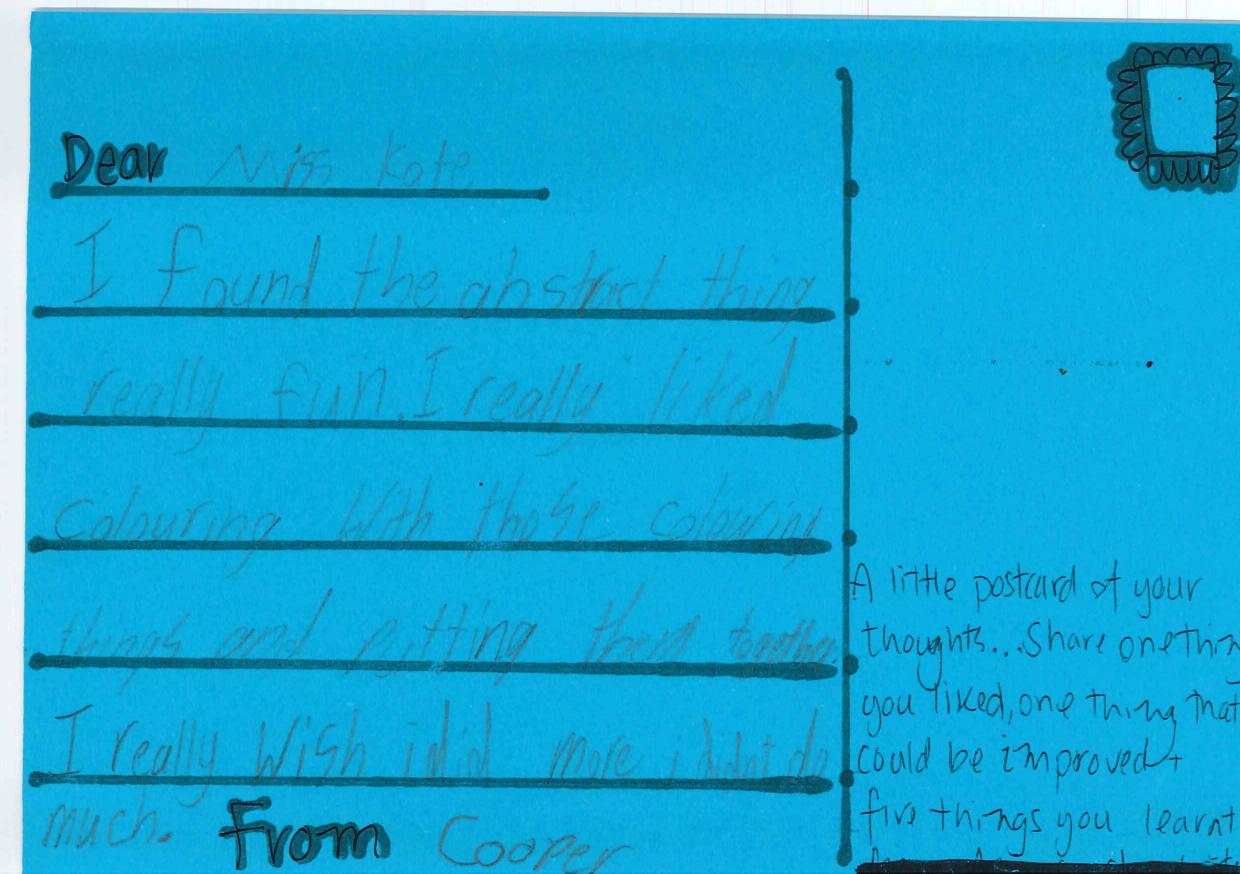 Dear Miss Kate
I found the abstract thing
really fun. I really liked
colouring with those colouring
things and putting them together.
I really wish i did more i didnt do
much. From Cooper
A little postcard of your
thoughts... Share one thin
you liked, one thing that
could be improved +
five things you learnt